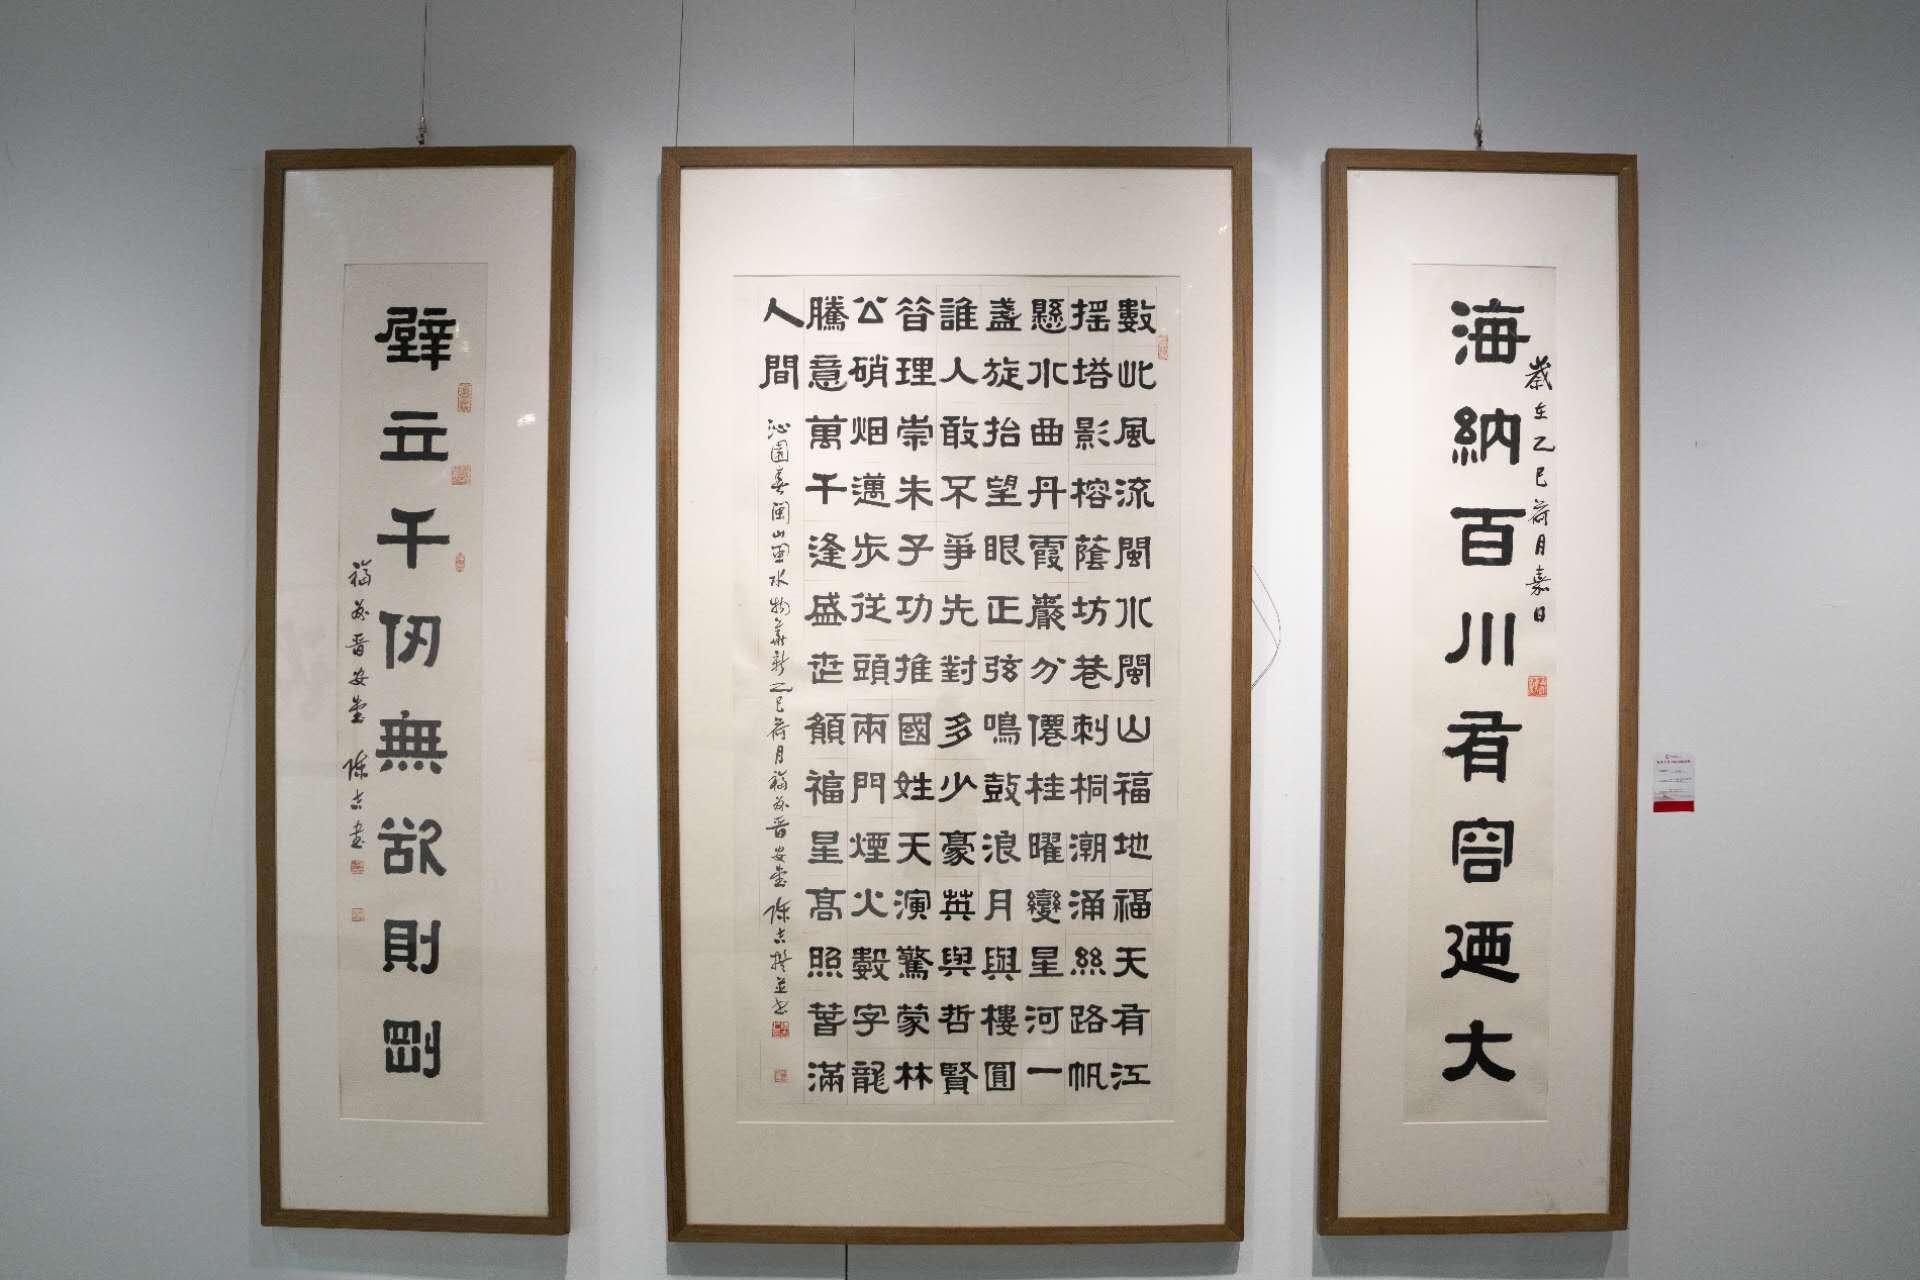 海納百川有容迺大
歲在乙巳荷月嘉日
數此風流閩水閩山福地福天有江
搖塔影榕蔭坊巷刺桐潮涌絲路帆
懸水曲丹霞巖分僊桂曜變星河一
盞旋抬望眼正弦鳴鼓浪月與樓圓
誰人敢不爭先對多少豪英與哲賢
㫺理崇朱子功推國姓天演驚蒙林
公硝烟邁步從頭兩門煙火數字龍
騰意萬千逢盛世願福星高照萅滿
人間
沁園春閩山閩水物華新乙巳荷月福晋安堂陳吉撰並書
壁立千仞無欲則剛
福晋安堂陳吉書